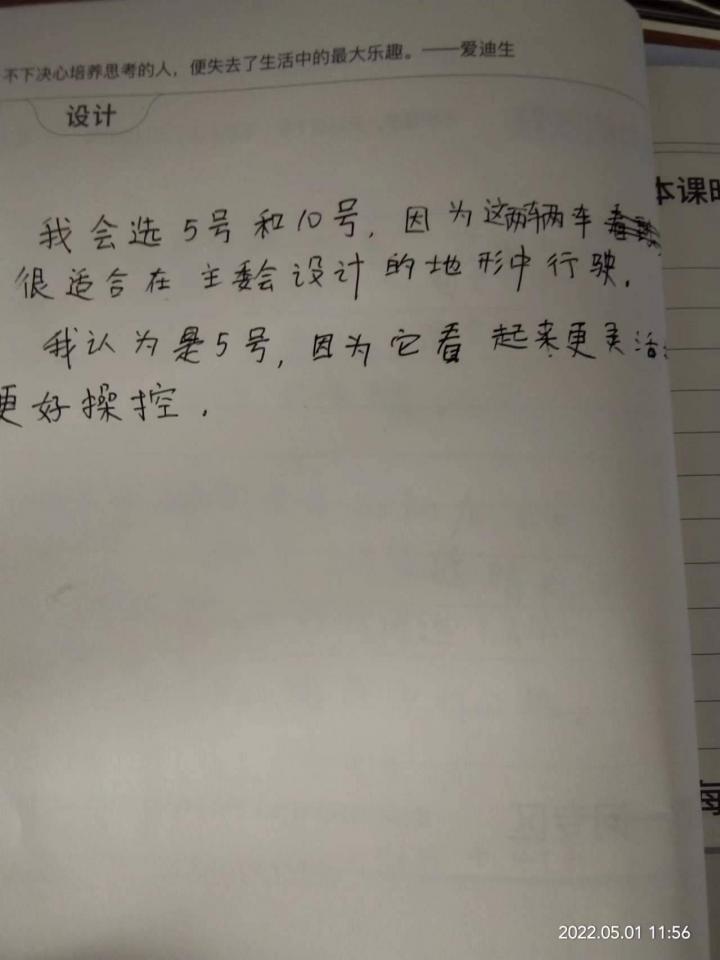 不下决心培养思考的人，便失去了生活中的最大乐趣。——爱迪生
设计
我会选5号和10号，因为这两辆车
很适合在主委会设计的地形中行驶.
我认为是5号，因为它看起来更灵活
更好操控.
本课时
2022.05.01 11:56